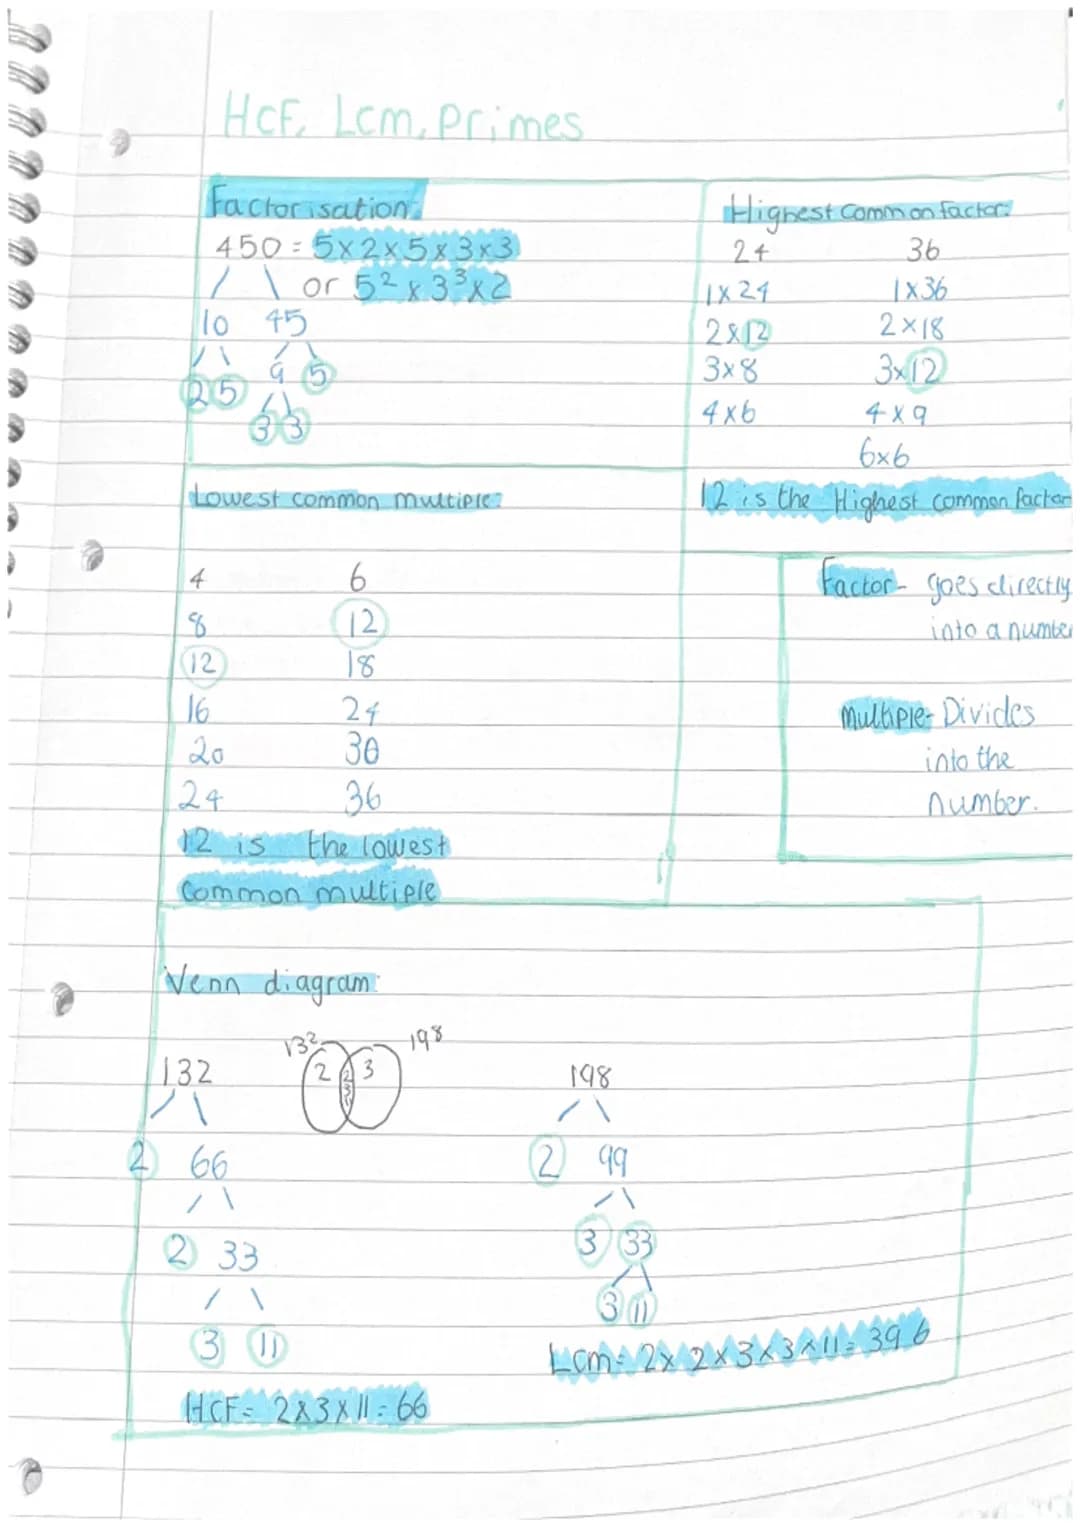 HCF, Lcm, Primes
Factorisation:
450 = 5×2×5×3×3
or 5² × 3³ × 2
10 45
2 5 9 5
3 3
Highest Common factor:
24 36
1×24 1×36
2×12 2×18
3×8 3×12
4×6 4×9
6×6
12 is the Highest common factor
Lowest common multiple:
4 6
8 12
12 18
16 24
20 30
24 36
12 is the lowest
Common multiple
Factor- goes directly
into a number
Multiple- Divides
into the
number.
Venn diagram:
132 198
2 2 3 11 3
132
2 66
2 33
3 11
HCF = 2×3×11 = 66
198
2 99
3 33
3 11
Lcm = 2×2×3×3×11 = 396